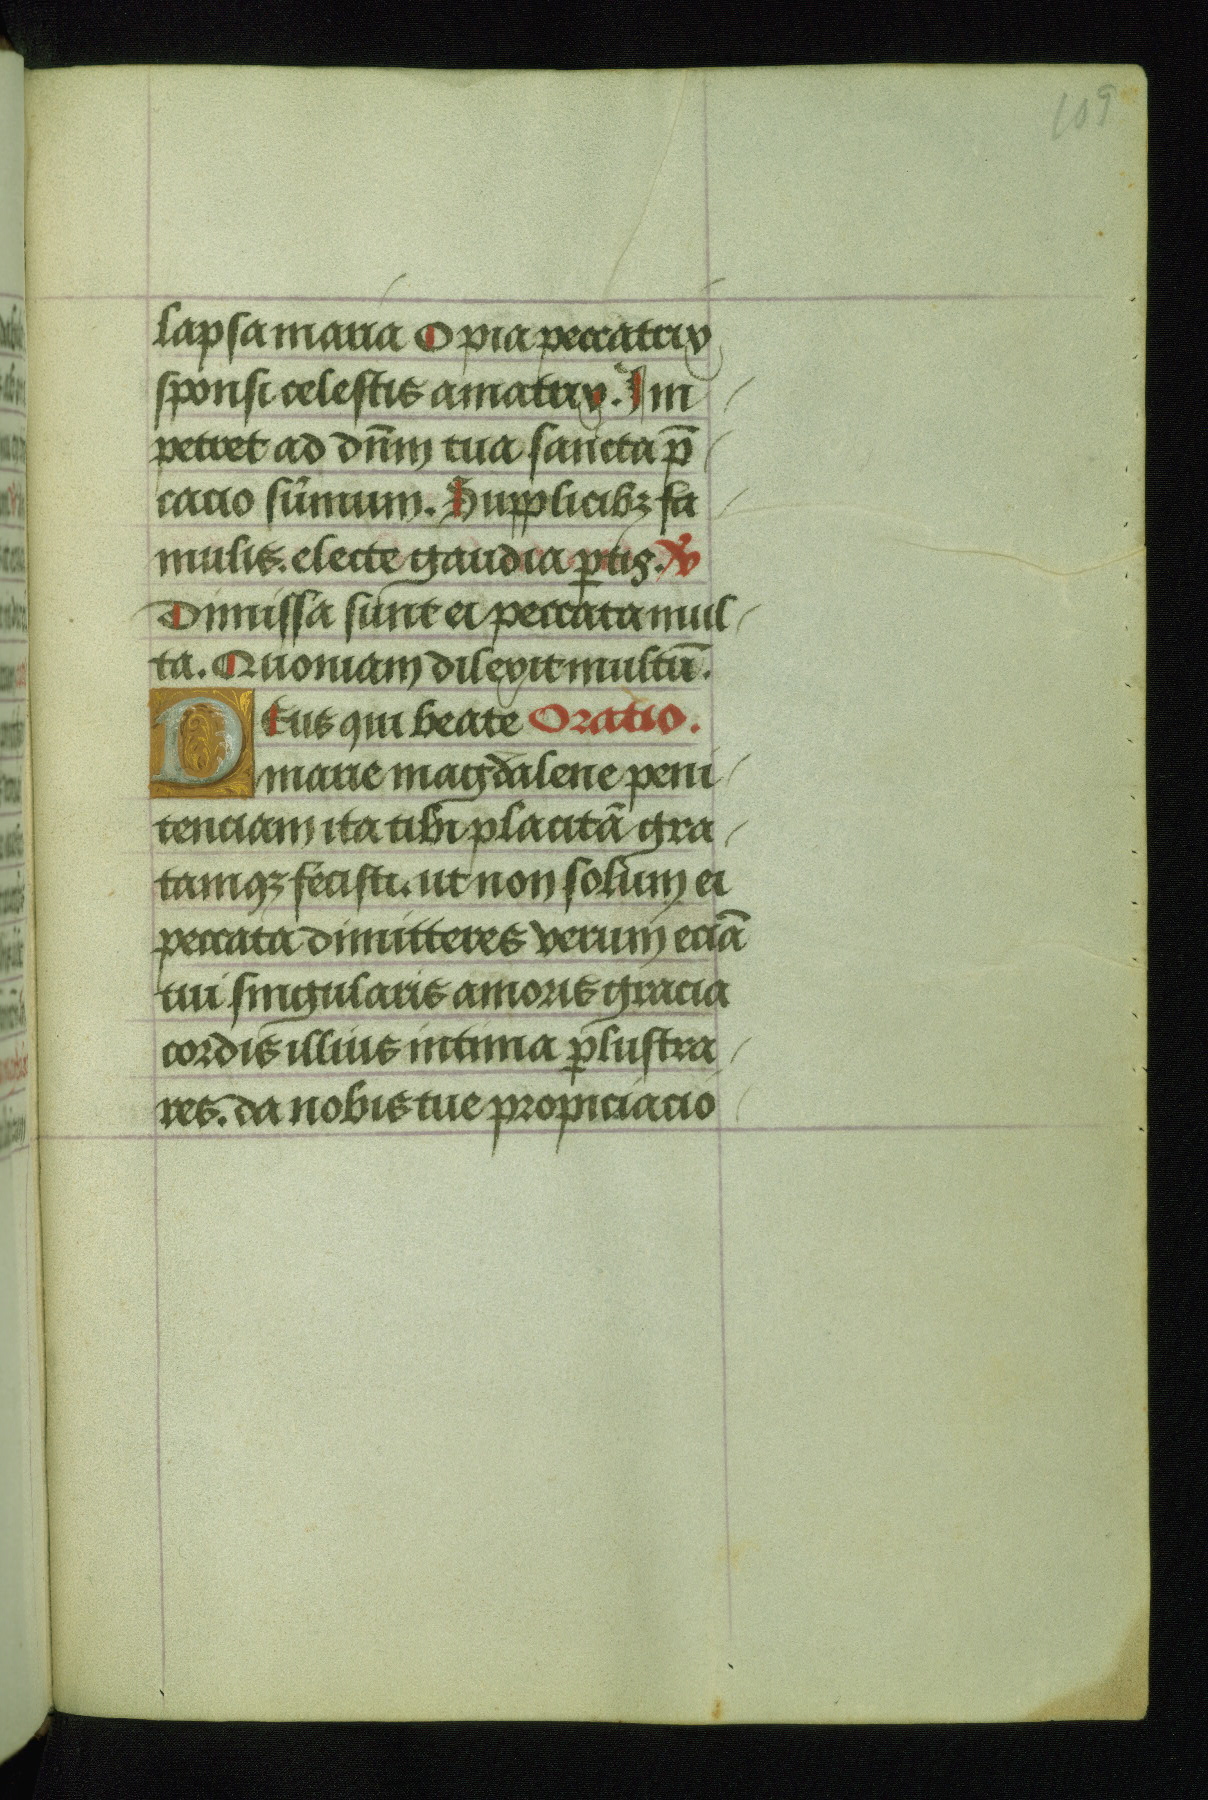 109
lapsa maria O pia peccatrix
sponsi celestis amatrix. Im
petret ad dn̄m tua sancta p̄
cacio sum̄um. Supplicibꝫ fa
mulis. electe gaudia ꝑtis. ℣
Dimissa sunt ei peccata mul
ta. Quoniam dilexit multū.
Deus qui beate Oratio.
marie magdalene peni
tenciam ita tibi placitā gra
tamqꝫ fecisti. ut non solum ei
peccata dimitteres verum eciā
tui singularis amoris gracia
cordis illius intima ꝑlustra
res. da nobis tue propiciacio